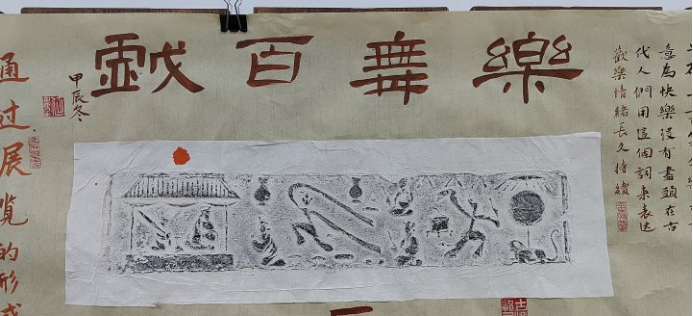 樂舞百戯
甲辰冬
意為快樂沒有盡頭在古
代人們用這個詞來表达
歡樂情緒長久持續
通过展览的形